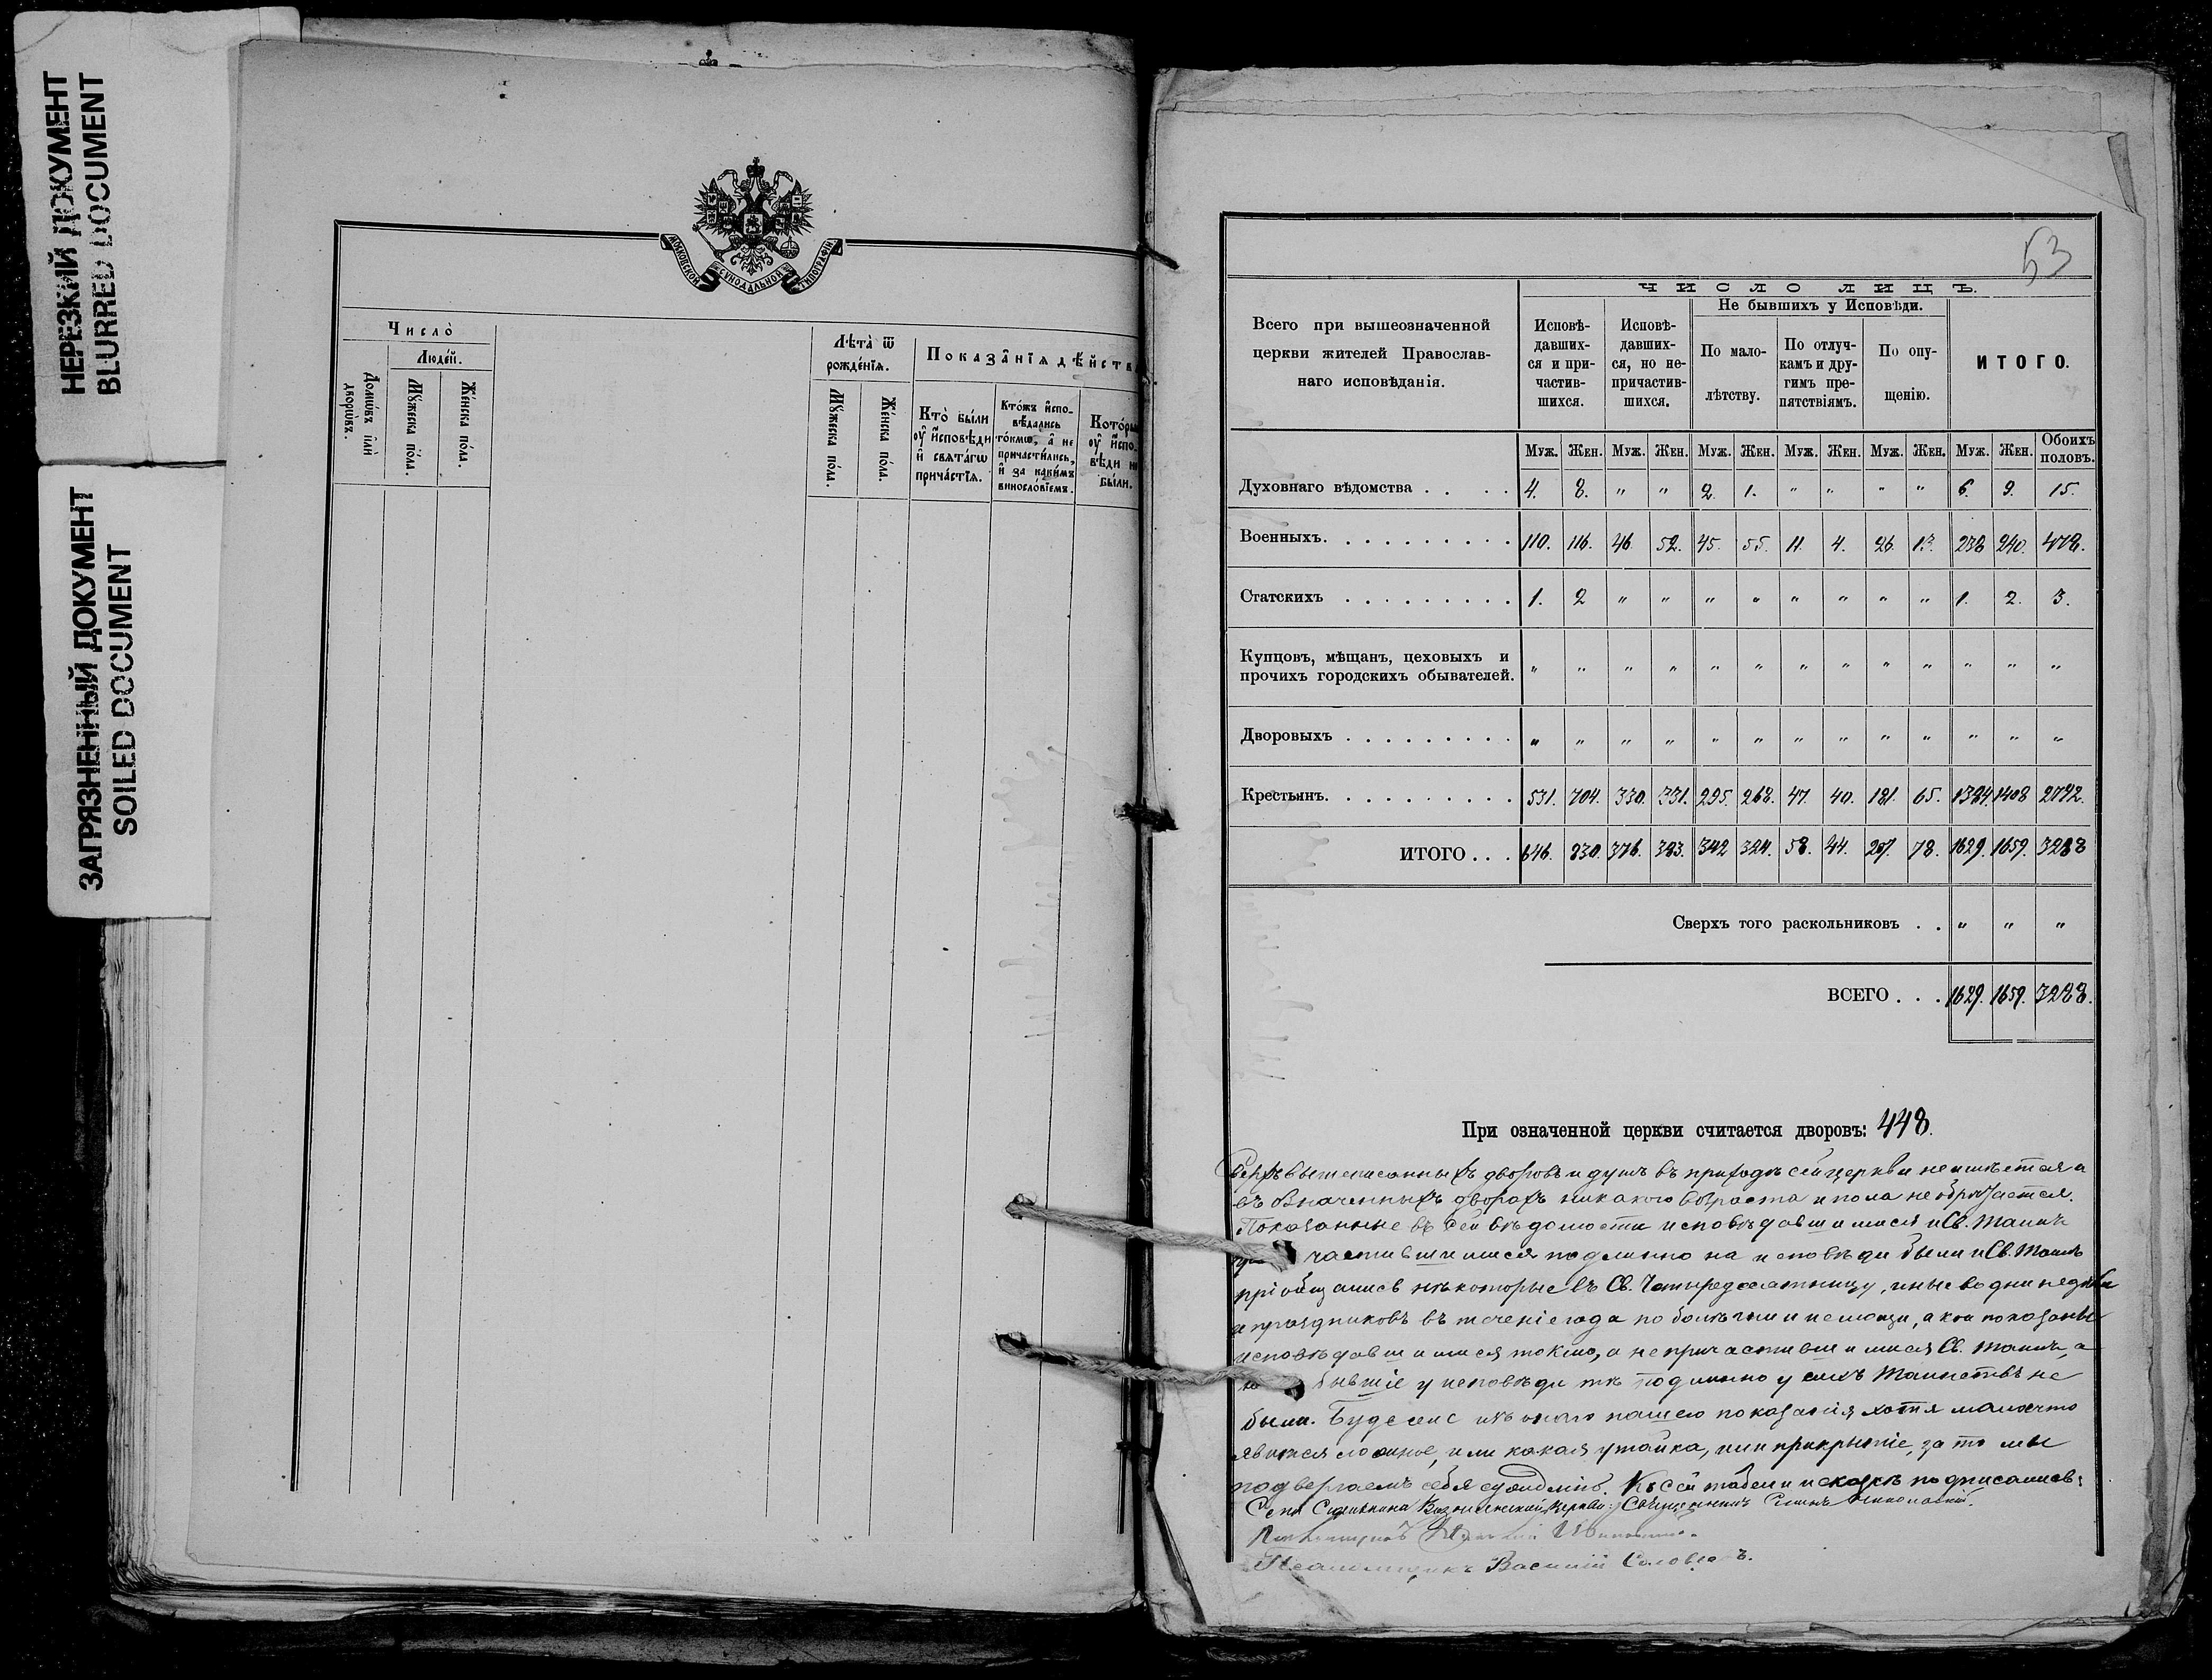 НЕРЕЗКИЙ ДОКУМЕНТ
BLURRED DOCUMENT
ЗАГРЯЗНЕННЫЙ ДОКУМЕНТ
SOILED DOCUMENT
МОСКОВСКОЙ СУНОДАЛЬНОЙ ТИПОГРАФІИ
Число̀
Людей.
Домѡвъ и҆лѝ дворѡвъ.
Мꙋжеска по́ла.
Же́нска по́ла.
Лѣта̀ ѿ рожде́нїѧ.
Мꙋжеска по́ла.
Же́нска по́ла.
Показа̂нїѧ дѣйств
Кто̀ бы́ли ᲂу҆ и҆сповѣди и҆ свѧта́гѡ прича́стїѧ.
Кто́жъ и҆сповѣдались то́кмѡ, а҆ не причасти́лись, и҆ за каки́мъ винословїемъ.
Кото́ры ᲂу҆ и҆сповѣди н бы́ли.
53
ЧИСЛО ЛИЦЪ.
Всего при вышеозначенной церкви жителей Православнаго исповѣданія.
Исповѣдавшихся и причастившихся.
Исповѣдавшихся, но непричастившихся.
Не бывшихъ у Исповѣди.
По малолѣтству.
По отлучкамъ и другимъ препятствіямъ.
По опущенію.
ИТОГО.
Муж. Жен. Муж. Жен. Муж. Жен. Муж. Жен. Муж. Жен. Муж. Жен. Обоихъ половъ.
Духовнаго вѣдомства . . . . 4. 8. " " 2. 1. " " " " 6. 9. 15.
Военныхъ. . . . . . . . . . 110. 116. 46. 52. 45. 55. 11. 4. 26. 13. 238. 240. 478.
Статскихъ . . . . . . . . . 1. 2 " " " " " " " " 1. 2. 3.
Купцовъ, мѣщанъ, цеховыхъ и прочихъ городскихъ обывателей. " " " " " " " " " " " " "
Дворовыхъ . . . . . . . . . " " " " " " " " " " " " "
Крестьянъ. . . . . . . . . . 531. 704. 330. 331. 295. 268. 47. 40. 181. 65. 1384. 1408 2792.
ИТОГО . . . 646. 830. 376. 383. 342 324. 58. 44. 207. 78. 1629. 1659. 3288
Сверхъ того раскольниковъ . . " " "
ВСЕГО . . . 1629. 1659. 3288.
При означенной церкви считается дворовъ: 448.
Сверхъ вышеписанныхъ дворовъ и душъ въ приходѣ сей церкви не имѣется и
въ означенныхъ дворахъ никакого возраста и пола не обрѣтается.
Показанные въ сей вѣдомости исповѣдавшимися и Св. Таинъ
частившимися подлинно на исповѣди были и Св. Таинъ
пріобщались нѣкоторые въ Св. Четыредесятницу, иные во дни недѣль
и праздниковъ въ теченіе года по болѣзни и немощи, а кои показаны
исповѣдавшимися токмо, а не причастившимися Св. Таинъ, а
бывшіе у исповѣди тѣ подлинно у сихъ Таинствъ не
были. Буде же съ онаго нашего показанія хотя мало что
явится ложное, или какая утайка, или прикрытіе, за то мы
подвергаемъ себя. Къ сей табели и сказкѣ подписались:
Села Вознесенской церкви: Священникъ
Псаломщикъ Василій Соловьевъ.